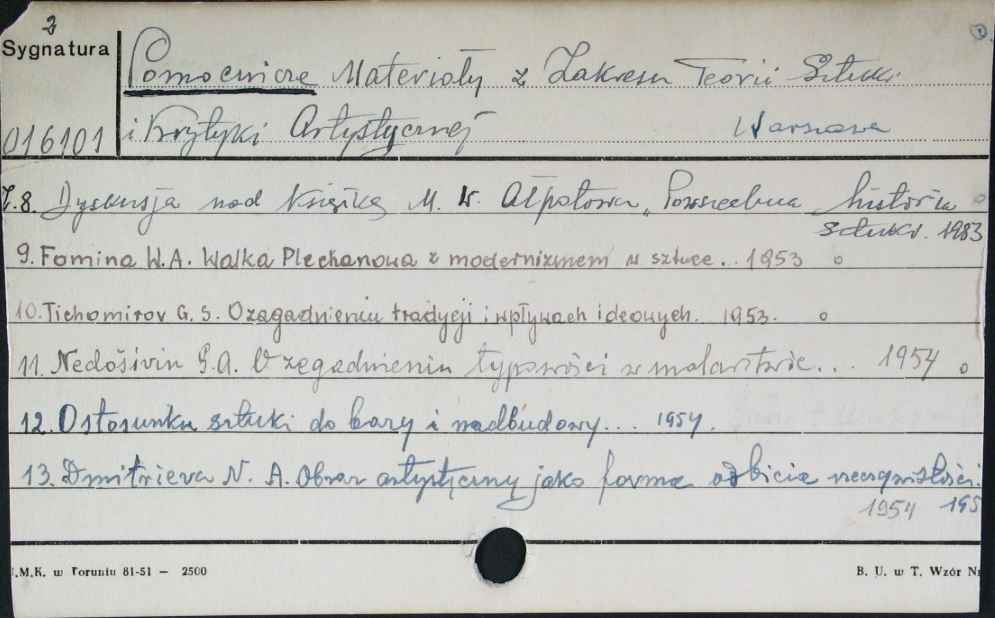 2
Sygnatura
Pomocnicze Materiały z Zakresu Teorii Sztuki
016101
i Krytyki Artystycznej Warszawa
Z.8. Dyskusja nad Książką M. W. Ałpatowa „Powszechna historia
sztuki. 1953
9. Fomina W.A. Walka Plechanowa z modernizmem w sztuce.. 1953 o
10. Tichomirov G. S. O zagadnieniu tradycji i wpływach ideowych. 1953. o
11. Nedošivin G.A. O zagadnieniu typowości w malarstwie... 1954 o
12. O stosunku sztuki do bazy i nadbudowy... 1954.
13. Dmitrieva N. A. Obraz artystyczny jako forma odbicia rzeczywistości.
1954 195
.M.K. w Toruniu 81-51 — 2500
B. U. w T. Wzór Nr